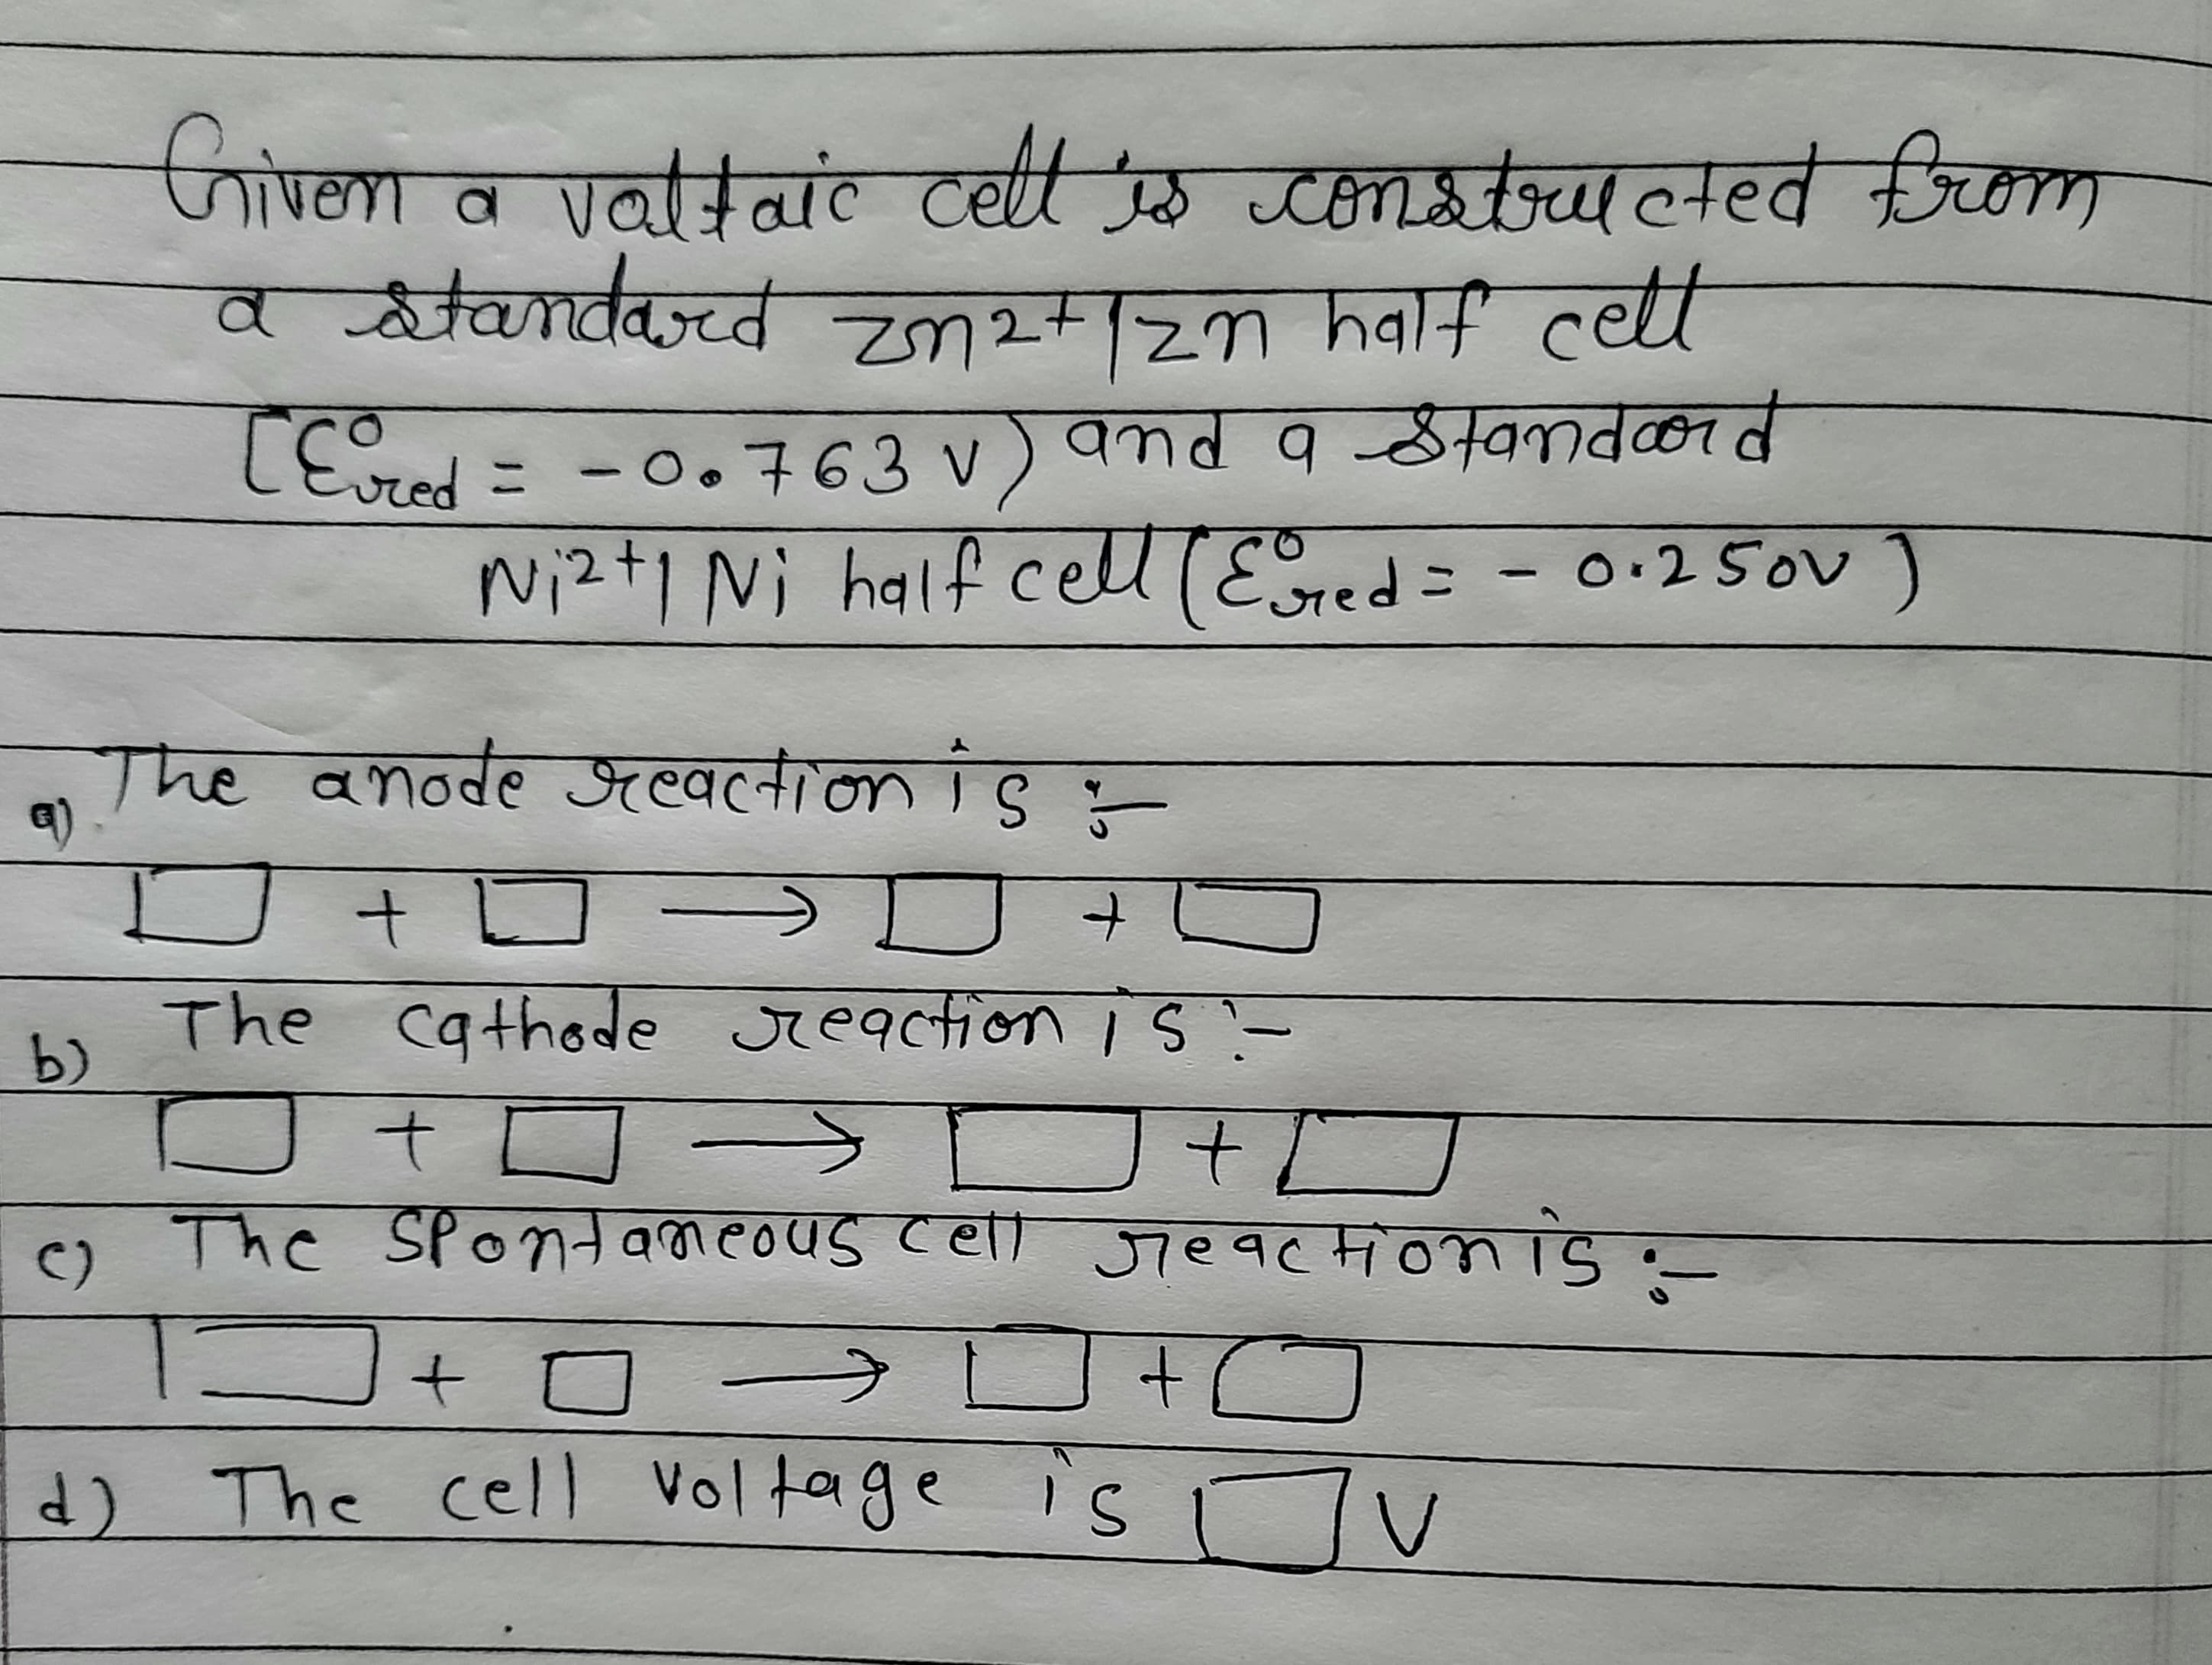 Given a voltaic cell is constructed from
a standard Zn2+|Zn half cell
[E°red = -0.763 V) and a standard
Ni2+| Ni half cell (E°red = - 0.250V)
a) The anode reaction is :-
□ + □ → □ + □
b) The cathode reaction is :-
□ + □ → □ + □
c) The spontaneous cell reaction is :-
□ + □ → □ + □
d) The cell voltage is □ V